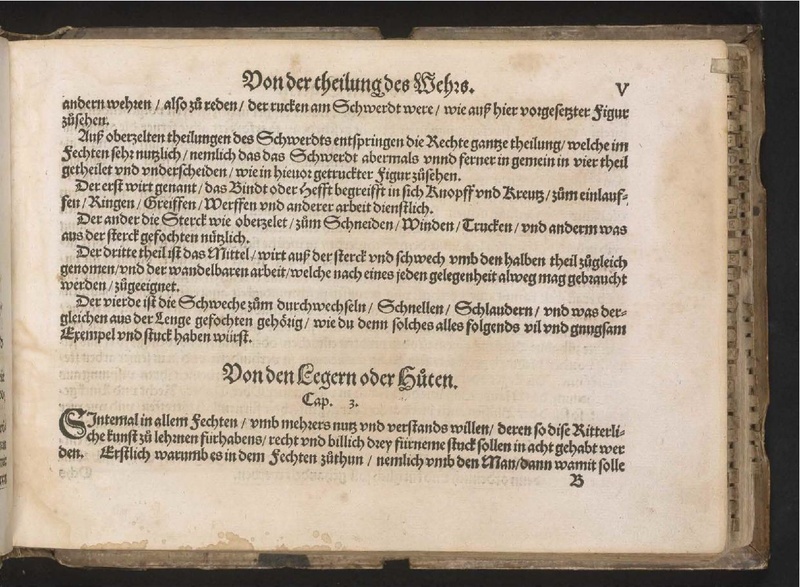 Von der theilung des Wehrs. V
andern wehren / also zů reden / der rucken am Schwerdt were / wie auß hier vorgesetzter Figur
zůsehen.
Auß oberzelten theilungen des Schwerdts entspringen die Rechte gantze theilung / welche im
Fechten sehr nutzlich / nemlich das das Schwerdt abermals vnnd ferner in gemein in vier theil
getheilet vnd vnderscheiden / wie in hieuor getruckter Figur zůsehen.
Der erst wirt genant / das Bindt oder Hefft begreifft in sich Knopff vnd Kreutz / zům einlauf-
fen / Ringen / Greiffen / Werffen vnd anderer arbeit dienstlich.
Der ander die Sterck wie oberzelet / zům Schneiden / Winden / Trucken / vnd anderm was
aus der sterck gefochten nützlich.
Der dritte theil ist das Mittel / wirt auß der sterck vnd schwech vmb den halben theil zůgleich
genomen / vnd der wandelbaren arbeit / welche nach eines jeden gelegenheit alweg mag gebraucht
werden / zůgeeignet.
Der vierde ist die Schweche zům durchwechseln / Schnellen / Schlaudern / vnd was der-
gleichen aus der Lenge gefochten gehörig / wie du denn solches alles folgends vil vnd gnugsam
Exempel vnd stuck haben würst.
Von den Legern oder Hůten.
Cap. 3.
SIntemal in allem Fechten / vmb mehrers nutz vnd verstands willen / deren so dise Ritterli-
che kunst zů lehrnen fürhabens / recht vnd billich drey fürneme stuck sollen in acht gehabt wer
den. Erstlich warumb es in dem Fechten zůthun / nemlich vmb den Man / dann wamit solle
B